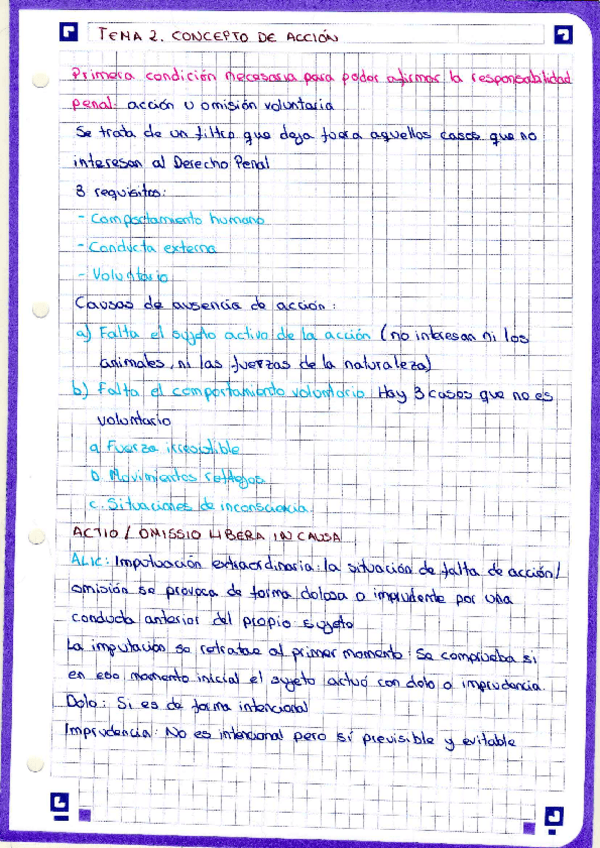 TEMA 2. CONCEPTO DE ACCIÓN
Primera condición necesaria para poder afirmar la responsabilidad
penal: acción u omisión voluntaria
Se trata de un filtro que deja fuera aquellos casos que no
interesan al Derecho Penal
3 requisitos:
- Comportamiento humano
- Conducta externa
- Voluntario
Causas de ausencia de acción:
a) Falta el sujeto activo de la acción (no interesan ni los
animales, ni las fuerzas de la naturaleza)
b) Falta el comportamiento voluntario. Hay 3 casos que no es
voluntario
a. Fuerza irresistible
b. Movimientos reflejos
c. Situaciones de inconsciencia
ACTIO / OMISSIO LIBERA IN CAUSA
ALIC: Imputación extraordinaria: la situación de falta de acción/
omisión se provoca de forma dolosa o imprudente por una
conducta anterior del propio sujeto
La imputación se retrotae al primer momento. Se comprueba si
en ese momento inicial el sujeto actuó con dolo o imprudencia.
Dolo: Si es de forma intencional
Imprudencia: No es intencional pero sí previsible y evitable